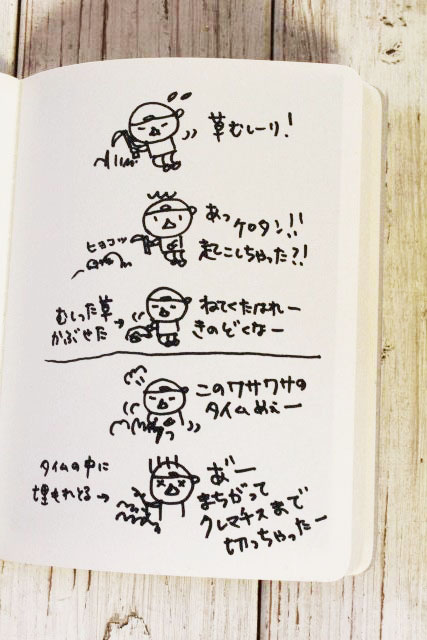 草むしーり!
あっケロタン!!
ヒョコッ
起こしちゃった?!
むしった草
かぶせた→
ねてくたはれー
きのどくなー
このワサワサの
タイムめぇー
タイムの中に
埋もれとる→
あ゛ー
まちがって
クレマチスまで
切っちゃったー